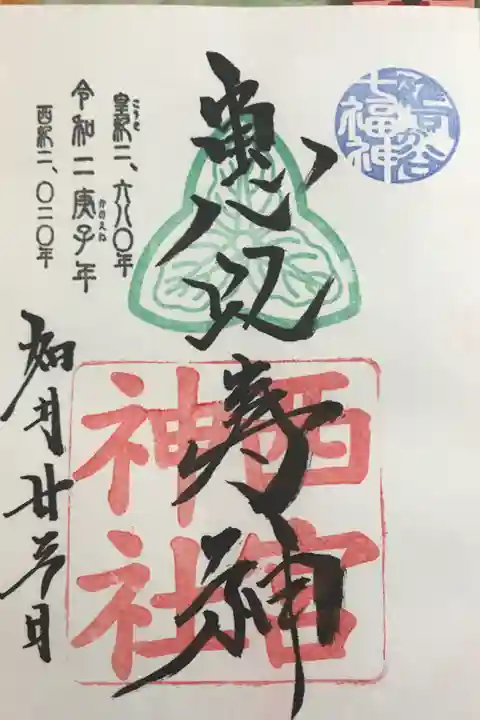 七福神
惠比寿神
西宮
神社
皇紀二、六八〇年
こうき
令和二庚子年
かのえね
西紀二、〇二〇年
如月廿日